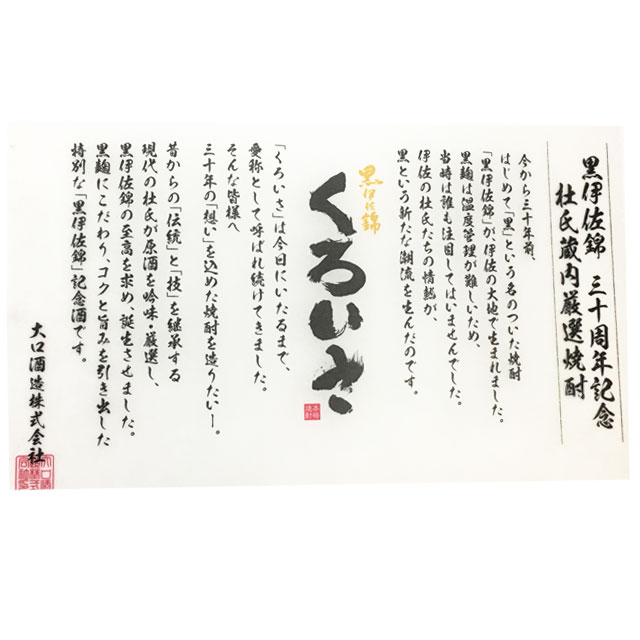 黒伊佐錦 三十周年記念
杜氏蔵内厳選焼酎
今から三十年前、
はじめて「黒」という名のついた焼酎
「黒伊佐錦」が、伊佐の大地で生まれました。
黒麹は温度管理が難しいため、
当時は誰も注目してはいませんでした。
伊佐の杜氏たちの情熱が、
黒という新たな潮流を生んだのです。
黒伊佐錦
くろいさ
本格焼酎
「くろいさ」は今日にいたるまで、
愛称として呼ばれ続けてきました。
そんな皆様へ
三十年の「想い」を込めた焼酎を造りたいー。
昔からの「伝統」と「技」を継承する
現代の杜氏が原酒を吟味・厳選し、
黒伊佐錦の至高を求め、誕生させました。
黒麹にこだわり、コクと旨みを引き出した
特別な「黒伊佐錦」記念酒です。
大口酒造株式会社